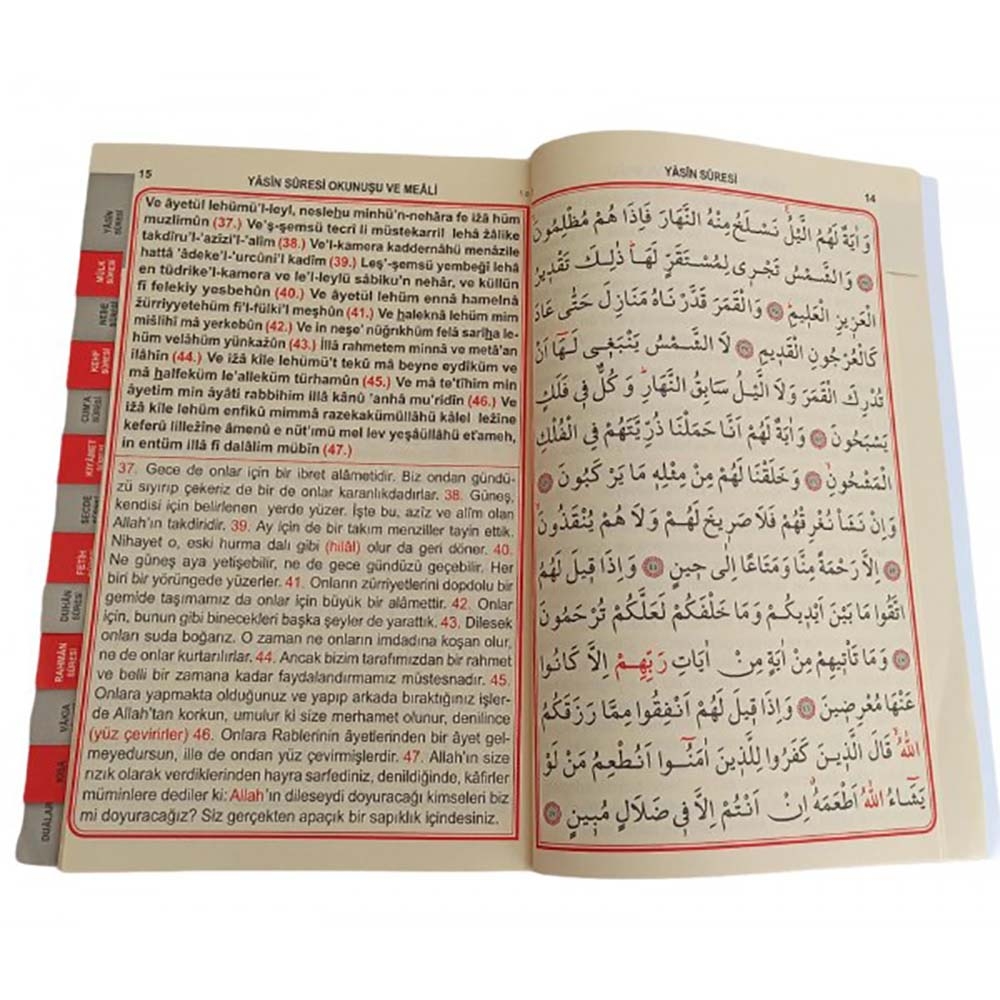 15
YÂSÎN SÛRESİ OKUNUŞU VE MEÂLİ
Ve âyetül lehümü'l-leyl, neslehu minhü'n-nehâra fe ižâ hüm
muzlimûn (37.) Ve'ş-şemsü tecrî li müstekarril lehâ žâlike
takdîru'l-'azîzi'l-'alîm (38.) Ve'l-kamera kaddernâhü menâzile
hattâ 'âdeke'l-'urcûni'l kadîm (39.) Leş'-şemsü yembeğî lehâ
en tüdrike'l-kamera ve le'l-leylü sâbiku'n nehâr, ve küllün
fî felekiy yesbehûn (40.) Ve âyetül lehüm ennâ hamelnâ
žürriyyetehüm fi'l-fülki'l meşhûn (41.) Ve haleknâ lehüm mim
mišlihî mâ yerkebûn (42.) Ve in neşe' nüğrıkhüm felâ sarîha le-
hüm velâhüm yünkazûn (43.) İllâ rahmetem minnâ ve metâ'an
ilâhîn (44.) Ve ižâ kîle lehümü't tekû mâ beyne eydîküm ve
mâ halfeküm le'alleküm türhamûn (45.) Ve mâ te'tîhim min
âyetim min âyâti rabbihim illâ kânû 'anhâ mu'ridîn (46.) Ve
ižâ kîle lehüm enfikû mimmâ razekakümüllâhü kâlel ležîne
keferû lilležîne âmenû e nüt'ımü mel lev yeşâüllâhü et'ameh,
in entüm illâ fî dalâlim mübîn (47.)
37. Gece de onlar için bir ibret alâmetidir. Biz ondan gündü-
zü sıyırıp çekeriz de bir de onlar karanlıkdadırlar. 38. Güneş,
kendisi için belirlenen yerde yüzer. İşte bu, azîz ve alîm olan
Allah'ın takdiridir. 39. Ay için de bir takım menziller tayin ettik.
Nihayet o, eski hurma dalı gibi (hilâl) olur da geri döner. 40.
Ne güneş aya yetişebilir, ne de gece gündüzü geçebilir. Her
biri bir yörüngede yüzerler. 41. Onların zürriyetlerini dopdolu bir
gemide taşımamız da onlar için büyük bir alâmettir. 42. Onlar
için, bunun gibi binecekleri başka şeyler de yarattık. 43. Dilesek
onları suda boğarız. O zaman ne onların imdadına koşan olur,
ne de onlar kurtarılırlar. 44. Ancak bizim tarafımızdan bir rahmet
ve belli bir zamana kadar faydalandırmamız müstesnadır. 45.
Onlara yapmakta olduğunuz ve yapıp arkada bıraktığınız işler-
de Allah'tan korkun, umulur ki size merhamet olunur, denilince
(yüz çevirirler) 46. Onlara Rablerinin âyetlerinden bir âyet gel-
meyedursun, ille de ondan yüz çevirmişlerdir. 47. Allah'ın size
rızık olarak verdiklerinden hayra sarfediniz, denildiğinde, kâfirler
müminlere dediler ki: Allah'ın dileseydi doyuracağı kimseleri biz
mi doyuracağız? Siz gerçekten apaçık bir sapıklık içindesiniz.
YÂSÎN SÛRESİ
MÜLK SÛRESİ
NEBE SÛRESİ
KEHF SÛRESİ
CUM'A SÛRESİ
KIYÂMET
SECDE
FETİH
DUHÂN SÛRESİ
RAHMÂN SÛRESİ
VÂKIA
KISA
DUALAR
YÂSÎN SÛRESİ
14
وَاٰيَةٌ لَهُمُ الَّيْلُ نَسْلَخُ مِنْهُ النَّهَارَ فَاِذَا هُمْ مُظْلِمُونَ
وَالشَّمْسُ تَجْرٖي لِمُسْتَقَرٍّ لَهَا ذٰلِكَ تَقْدٖيرُ
الْعَزٖيزِ الْعَلٖيمِ وَالْقَمَرَ قَدَّرْنَاهُ مَنَازِلَ حَتّٰى عَادَ
كَالْعُرْجُونِ الْقَدٖيمِ لَا الشَّمْسُ يَنْبَغٖي لَهَٓا اَنْ
تُدْرِكَ الْقَمَرَ وَلَا الَّيْلُ سَابِقُ النَّهَارِ وَكُلٌّ فٖي فَلَكٍ
يَسْبَحُونَ وَاٰيَةٌ لَهُمْ اَنَّا حَمَلْنَا ذُرِّيَّتَهُمْ فِي الْفُلْكِ
الْمَشْحُونِ وَخَلَقْنَا لَهُمْ مِنْ مِثْلِهٖ مَا يَرْكَبُونَ
وَاِنْ نَشَأْ نُغْرِقْهُمْ فَلَا صَرٖيخَ لَهُمْ وَلَا هُمْ يُنْقَذُونَ
اِلَّا رَحْمَةً مِنَّا وَمَتَاعًا اِلٰى حٖينٍ وَاِذَا قٖيلَ لَهُمُ
اتَّقُوا مَا بَيْنَ اَيْدٖيكُمْ وَمَا خَلْفَكُمْ لَعَلَّكُمْ تُرْحَمُونَ
وَمَا تَأْتٖيهِمْ مِنْ اٰيَةٍ مِنْ اٰيَاتِ رَبِّهِمْ اِلَّا كَانُوا
عَنْهَا مُعْرِضٖينَ وَاِذَا قٖيلَ لَهُمْ اَنْفِقُوا مِمَّا رَزَقَكُمُ
اللّٰهُ قَالَ الَّذٖينَ كَفَرُوا لِلَّذٖينَ اٰمَنُٓوا اَنُطْعِمُ مَنْ لَوْ
يَشَٓاءُ اللّٰهُ اَطْعَمَهُ اِنْ اَنْتُمْ اِلَّا فٖي ضَلَالٍ مُبٖينٍ